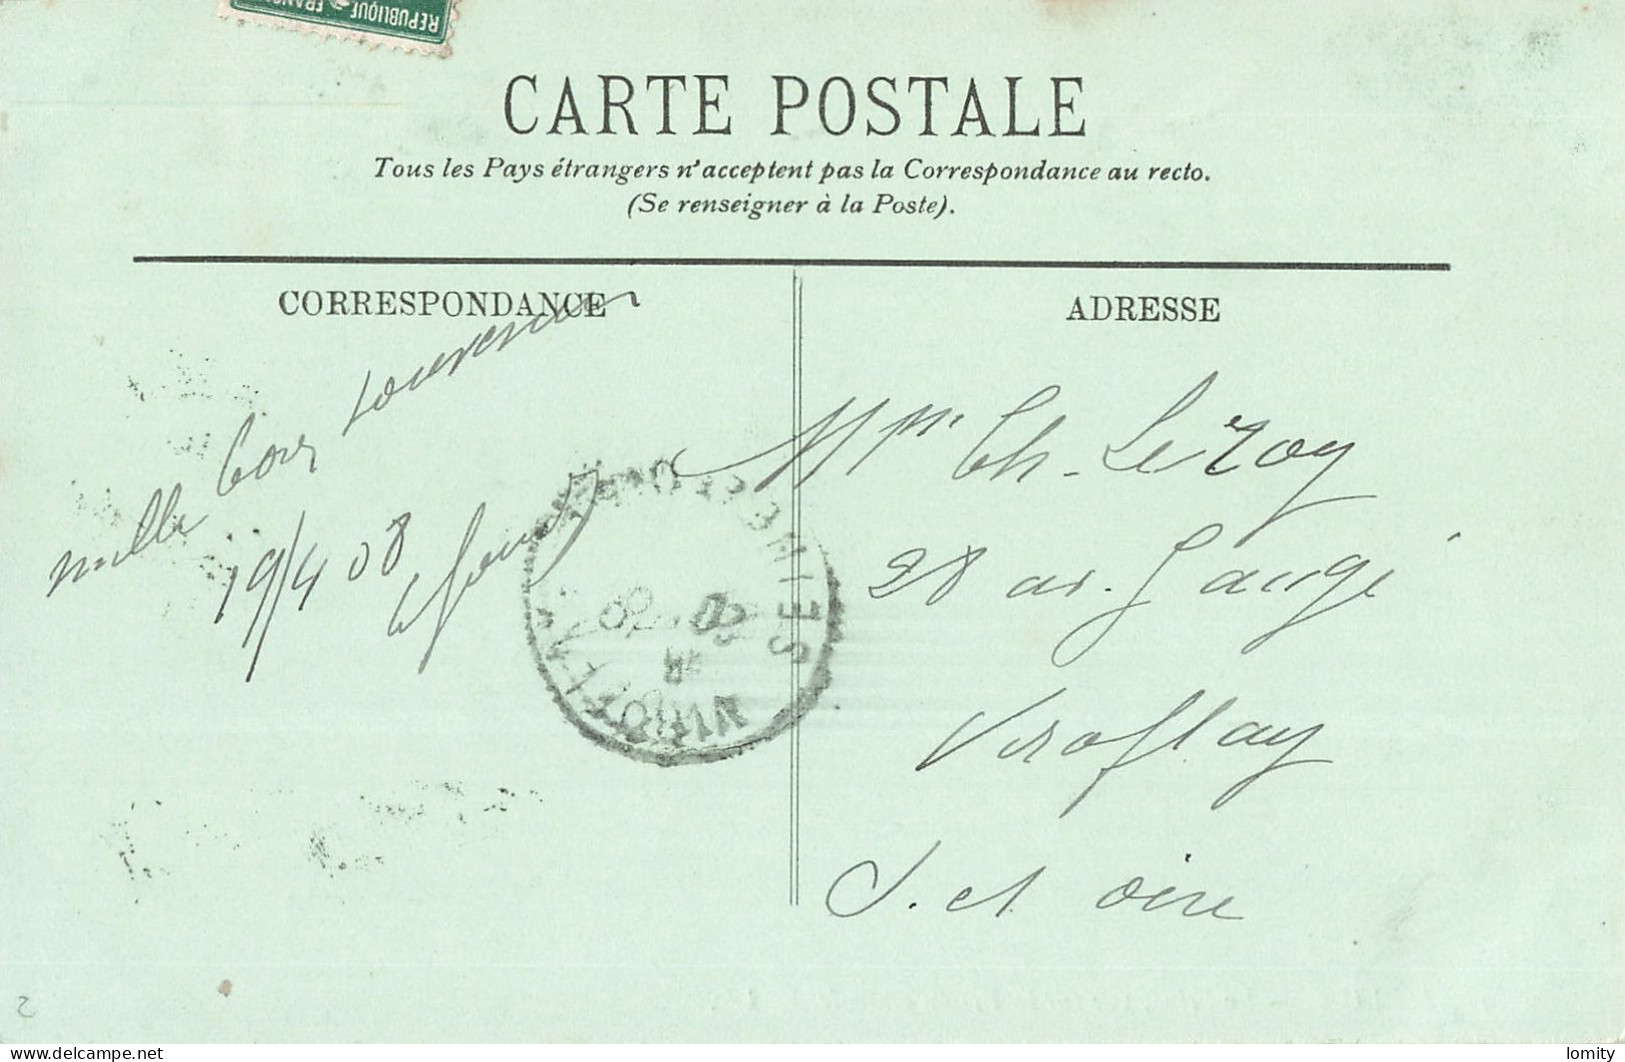 REPUBLIQUE FRANC
CARTE POSTALE
Tous les Pays étrangers n'acceptent pas la Correspondance au recto.
(Se renseigner à la Poste).
CORRESPONDANCE
ADRESSE
mille bons souvenirs
19/4 08
Mme Ch. Leroy
28 av. Gaugé
Viroflay
S. et oise
VIROFLAY
SEINE ET OISE
2
https://www.delcampe.net
lomity